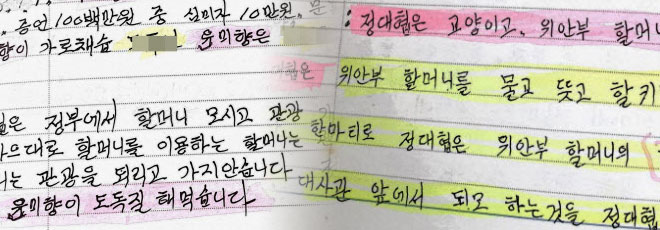 증언 100백만원 중 심미자 10만원.
향이 가로채습 윤미향은
은 정부에서 할머니 모시고 관광
으대로 할머니를 이용하는 할머니는
는 관광을 되리고 가지안습니다
윤미향이 도독질 해먹습니다
: 정대협은 고양이고. 위안부 할머니
협은 위안부 할머니를 물고 뜻고 할키
한마티로 정대협은 위안부 할머니의
대사관 앞에서 되모 하는것을 정대협